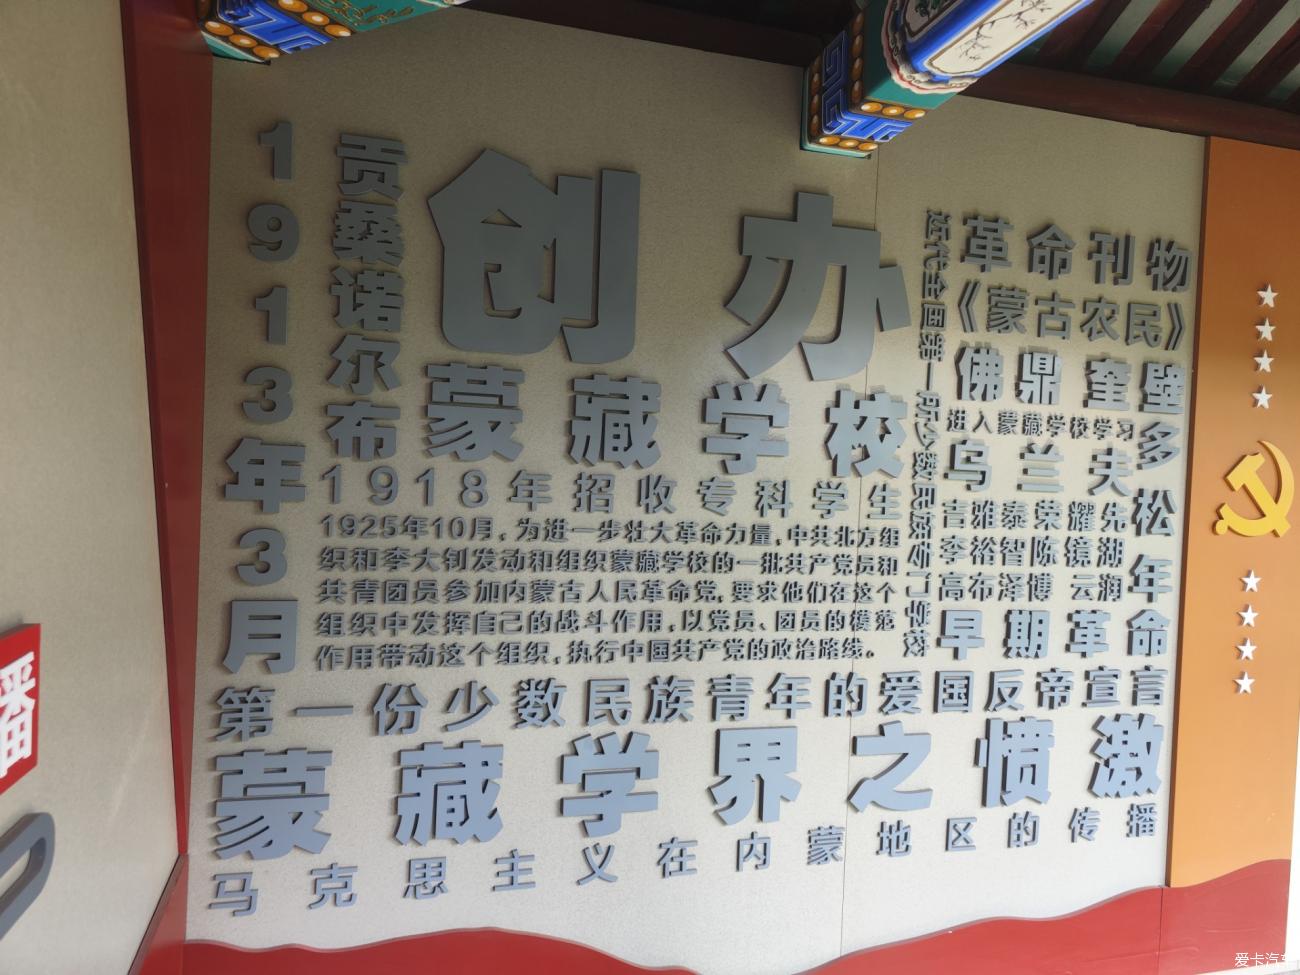 1913年3月
贡桑诺尔布
创办
蒙藏学校
1918年招收专科学生
1925年10月，为进一步壮大革命力量，中共北方组
织和李大钊发动和组织蒙藏学校的一批共产党员和
共青团员参加内蒙古人民革命党，要求他们在这个
组织中发挥自己的战斗作用，以党员、团员的模范
作用带动这个组织，执行中国共产党的政治路线。
近代全国第一所少数民族专门学校
革命刊物
《蒙古农民》
佛鼎 奎璧
进入蒙藏学校学习
多松年
乌兰夫
吉雅泰 荣耀先
李裕智 陈镜湖
高布泽博 云润
早期革命
第一份少数民族青年的爱国反帝宣言
蒙藏学界之愤激
马克思主义在内蒙地区的传播
播
爱卡汽车